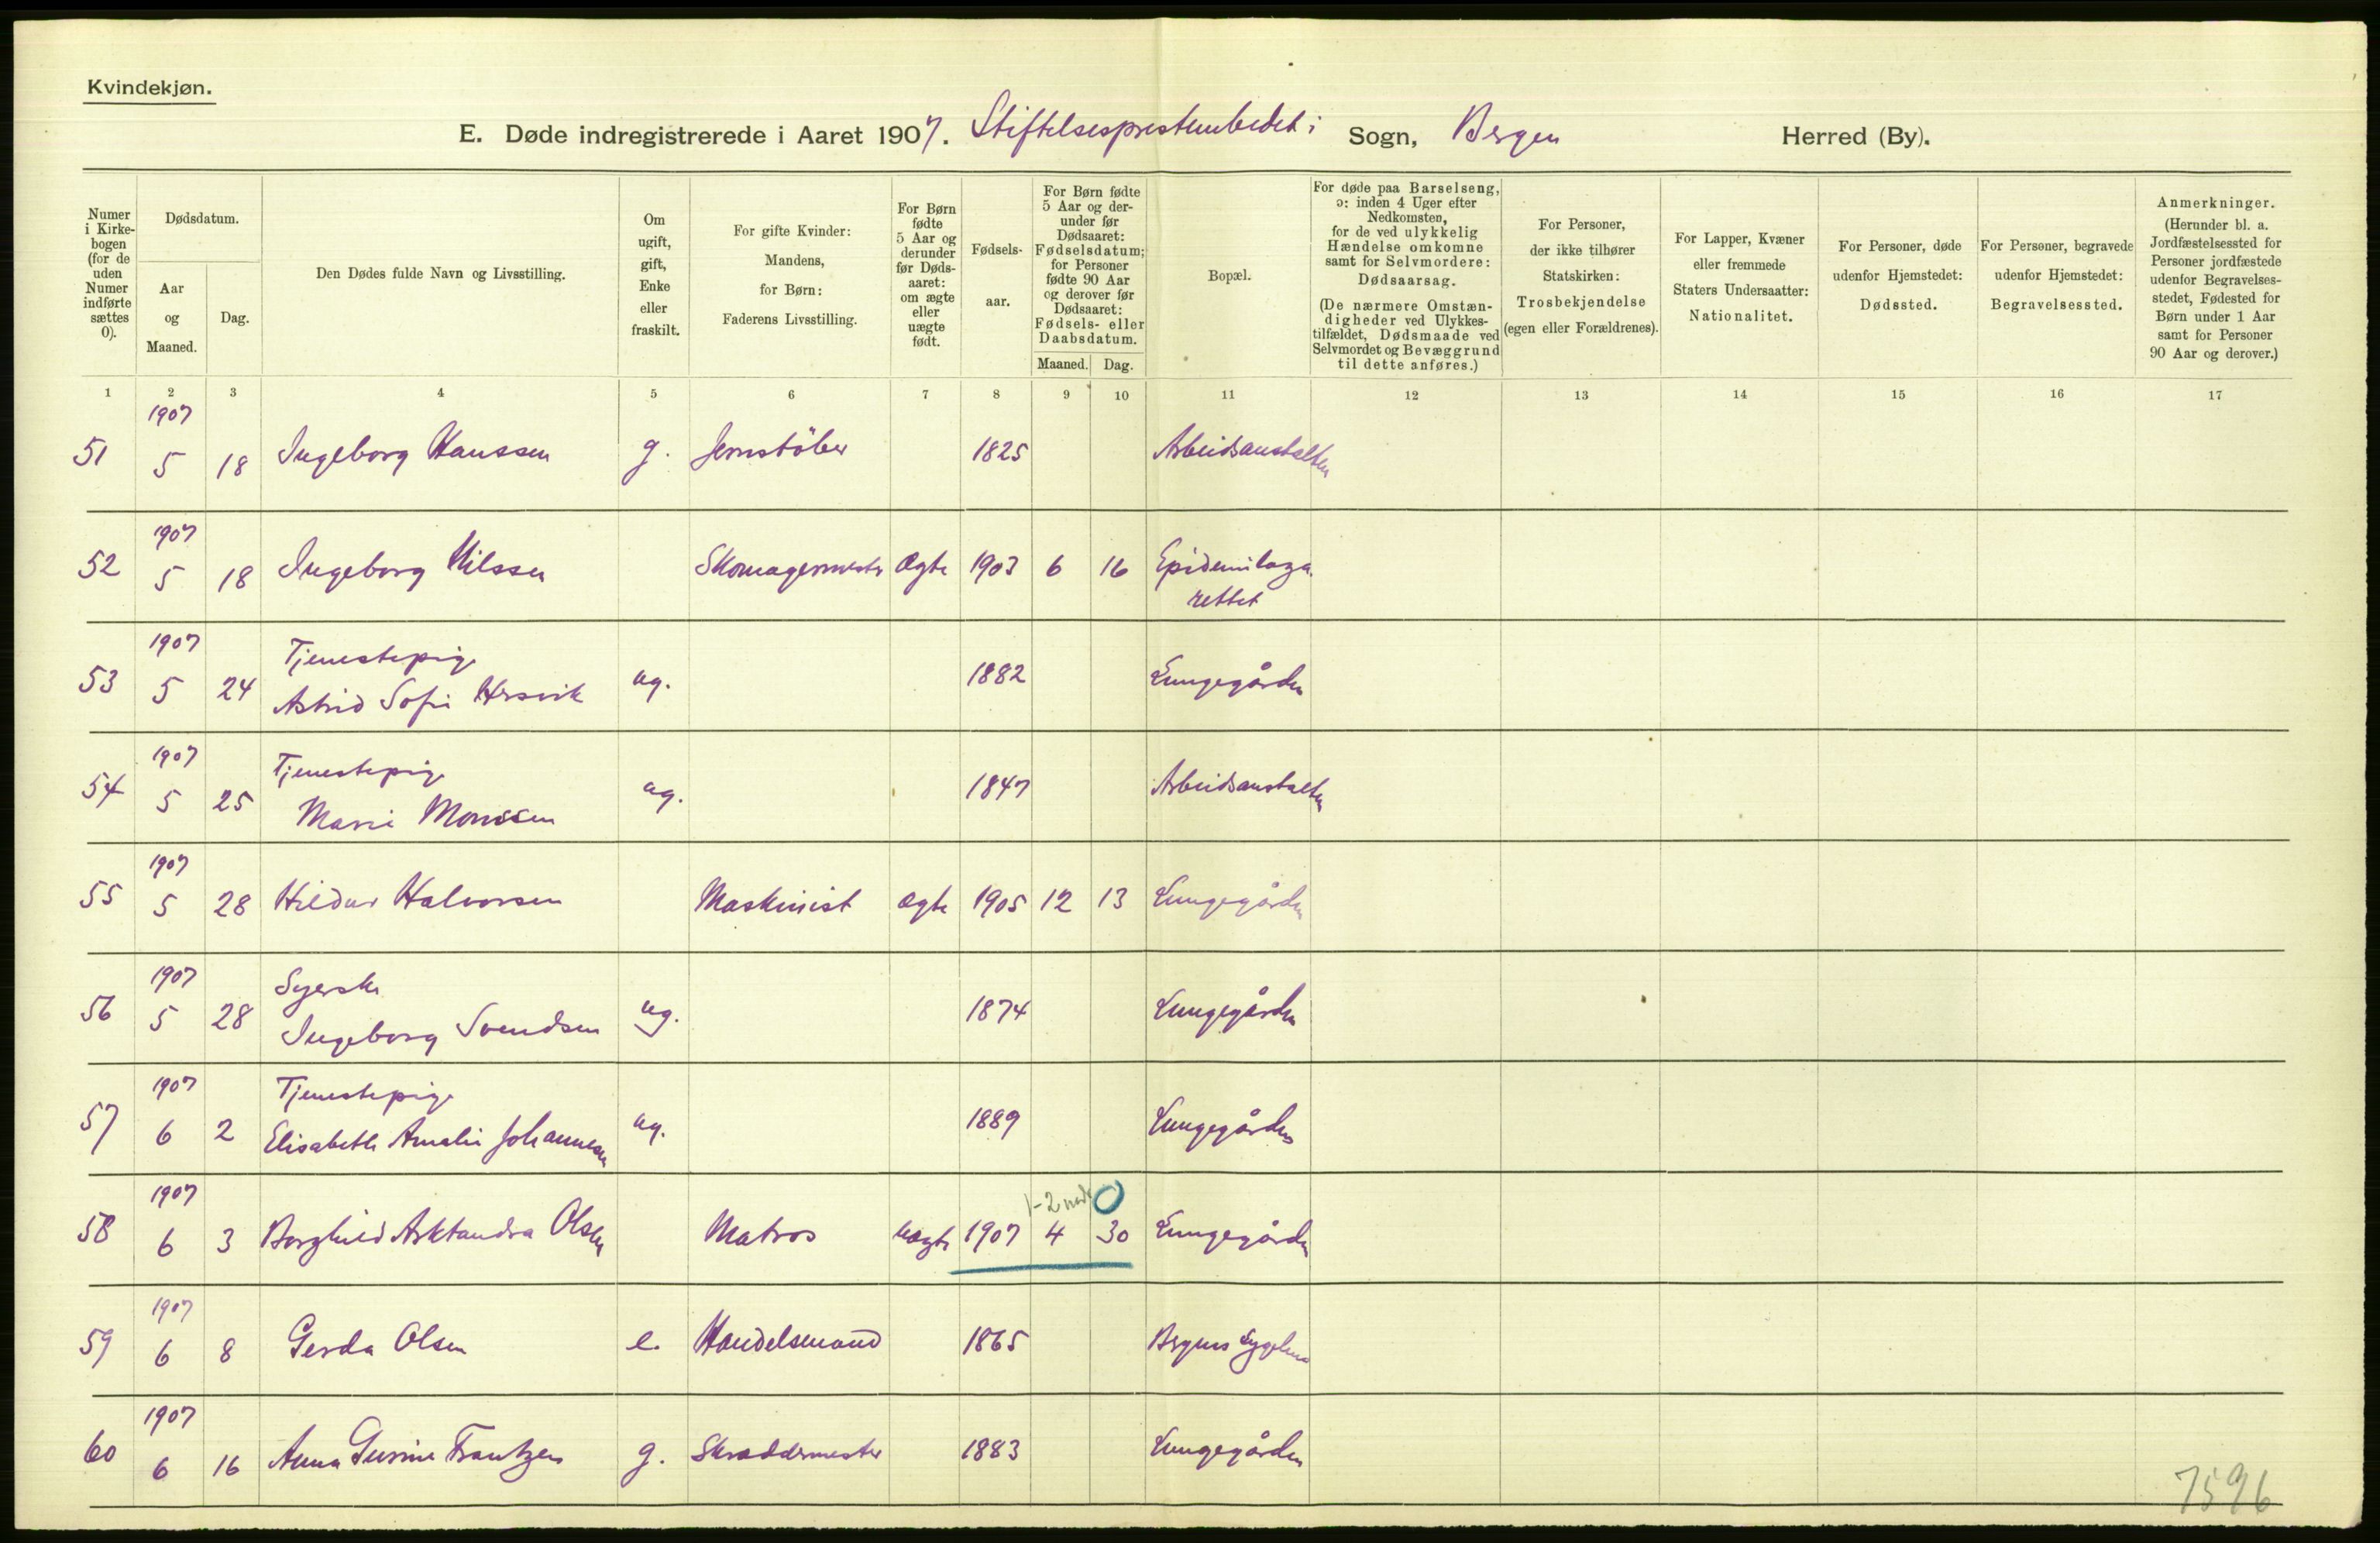 Kvindekjøn.
E. Døde indregistrerede i Aaret 1907. Stiftelsesprestembedet i Sogn, Bergen Herred (By).
Numer i Kirkebogen (for de uden Numer indførte sættes 0).
Dødsdatum.
Aar og Maaned.
Dag.
Den Dødes fulde Navn og Livsstilling.
Om ugift, gift, Enke eller fraskilt.
For gifte Kvinder: Mandens, for Børn: Faderens Livsstilling.
For Børn fødte 5 Aar og derunder før Dødsaaret: om ægte eller uægte født.
Fødselsaar.
For Børn fødte 5 Aar og derunder før Dødsaaret: Fødselsdatum; for Personer fødte 90 Aar og derover før Dødsaaret: Fødsels- eller Daabsdatum.
Maaned. Dag.
Bopæl.
For døde paa Barselseng, ɔ: inden 4 Uger efter Nedkomsten, for de ved ulykkelig Hændelse omkomne samt for Selvmordere: Dødsaarsag.
(De nærmere Omstændigheder ved Ulykkestilfældet, Dødsmaade ved Selvmordet og Bevæggrund til dette anføres.)
For Personer, der ikke tilhører Statskirken: Trosbekjendelse (egen eller Forældrenes).
For Lapper, Kvæner eller fremmede Staters Undersaatter: Nationalitet.
For Personer, døde udenfor Hjemstedet: Dødssted.
For Personer, begravede udenfor Hjemstedet: Begravelsessted.
Anmerkninger.
(Herunder bl. a. Jordfæstelsessted for Personer jordfæstede udenfor Begravelsesstedet, Fødested for Børn under 1 Aar samt for Personer 90 Aar og derover.)
1 2 3 4 5 6 7 8 9 10 11 12 13 14 15 16 17
1907
51 5 18 Ingeborg Hanssen g. Jernstöber 1825 Arbeidsanstalten
1907
52 5 18 Ingeborg Nilssen Skomagermester Ægte 1903 6 16 Epidemilaza
rettet
1907 Tjenestepige
53 5 24 Astrid Sofie Hersvik ug. 1882 Lungegården
1907 Tjenestepige
54 5 25 Marie Monssen ug. 1847 Arbeidsanstalten
1907
55 5 28 Hildur Halvorsen Maskinist Ægte 1905 12 13 Lungegården
1907 Syerske
56 5 28 Ingeborg Svendsen ug. 1874 Lungegården
1907 Tjenestepige
57 6 2 Elisabeth Amalie Johannesen ug. 1889 Lungegården
1907 1-2 mdr 0
58 6 3 Borghild Olsen Matros Uægte 1907 4 30 Lungegården
1907
59 6 8 Gerda Olsen e. Handelsmand 1865 Bergens Sygehus
1907
60 6 16 Anna Frantzen g. Skræddermester 1883 Lungegården
7596